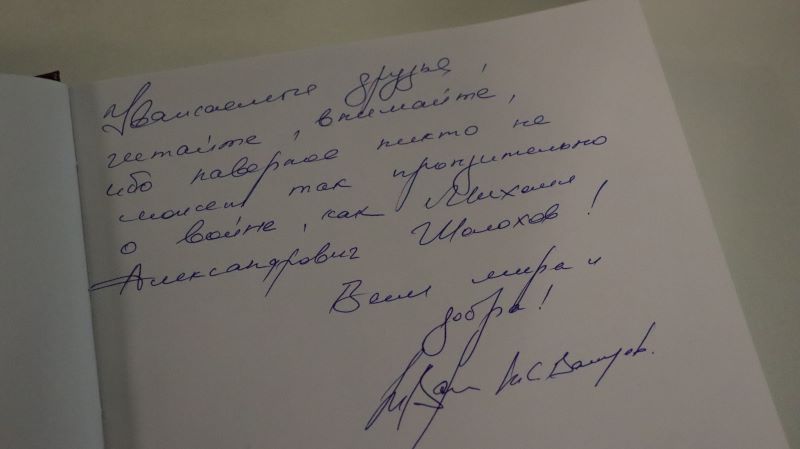 Уважаемые друзья,
читайте, внимайте,
ибо наверное никто не
может так пронзительно
о войне, как Михаил
Александрович Шолохов!
Всем мира и
добра!